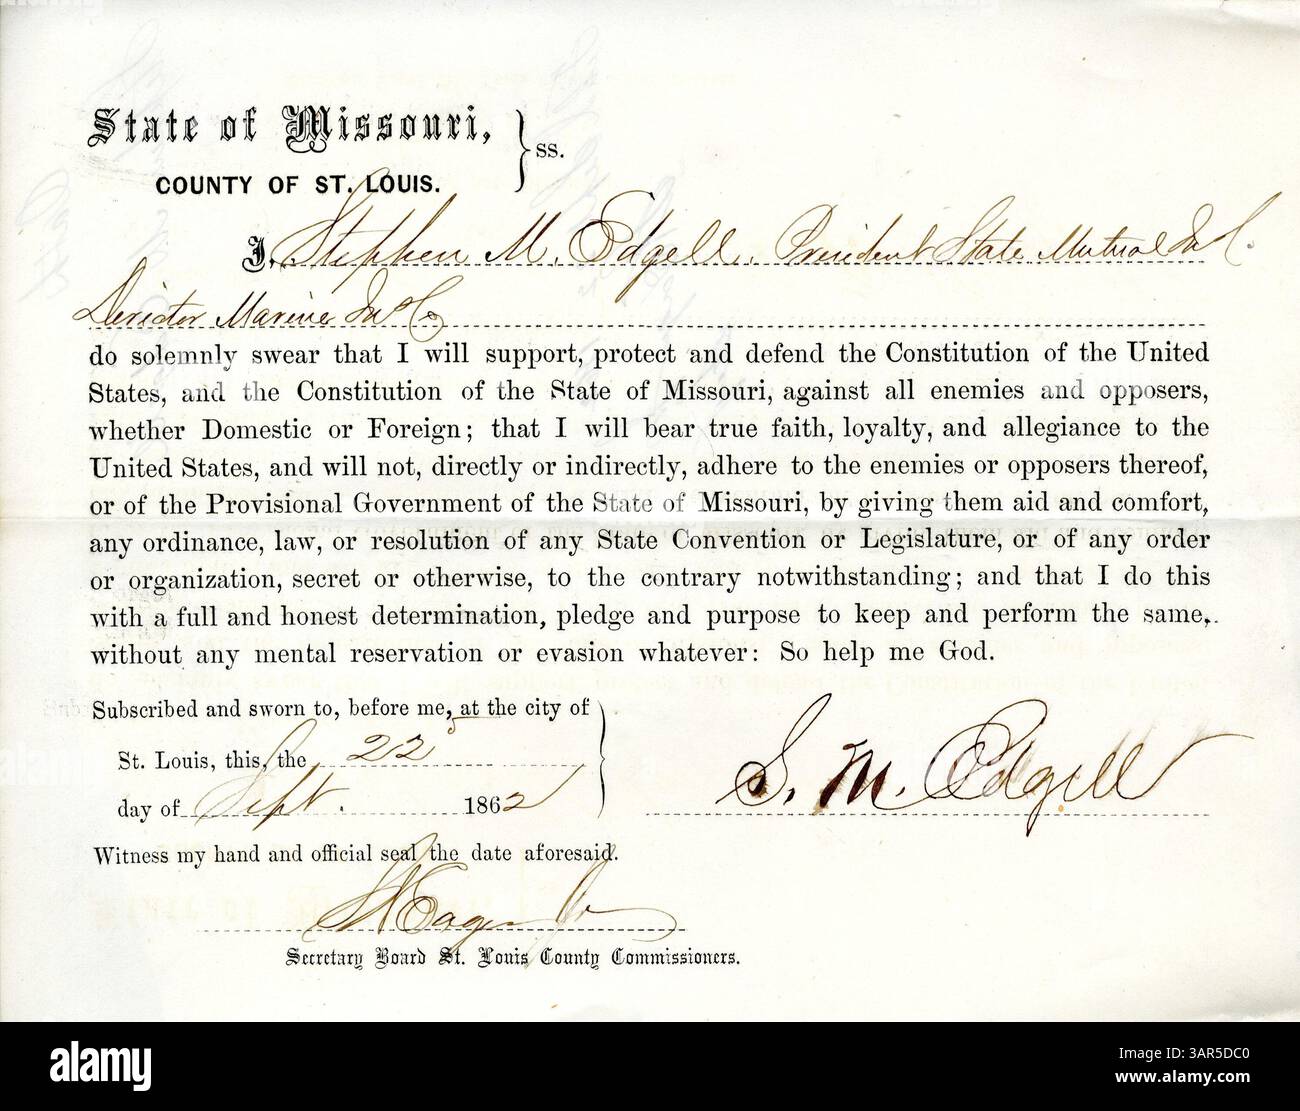 State of Missouri,
COUNTY OF ST. LOUIS. } ss.
I, Stephen M. Edgell, President State Mutual In Co.
Director Marine Ins Co
do solemnly swear that I will support, protect and defend the Constitution of the United
States, and the Constitution of the State of Missouri, against all enemies and opposers,
whether Domestic or Foreign; that I will bear true faith, loyalty, and allegiance to the
United States, and will not, directly or indirectly, adhere to the enemies or opposers thereof,
or of the Provisional Government of the State of Missouri, by giving them aid and comfort,
any ordinance, law, or resolution of any State Convention or Legislature, or of any order
or organization, secret or otherwise, to the contrary notwithstanding; and that I do this
with a full and honest determination, pledge and purpose to keep and perform the same,
without any mental reservation or evasion whatever: So help me God.
Subscribed and sworn to, before me, at the city of
St. Louis, this, the 22d
day of Sept. 1862
S. M. Edgell
Witness my hand and official seal the date aforesaid.
Eager Jr
Secretary Board St. Louis County Commissioners.
alamy
Image ID: 3AR5DC0
www.alamy.com